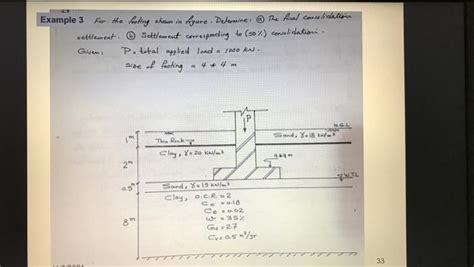 Example 3 For the footing shown in figure. Determine: ⓐ The final consolidation
settlement. ⓑ Settlement corresponding to (50%) consolidation.
Given: P = total applied load = 1000 kN.
Size of footing = 4 * 4 m
P
N.G.L
1m
Thin Rock
Sand, γ=18 kN/m³
Clay, γ=20 kN/m³
2m
4*4 m
W.T.
0.5m
Sand, γ=19 kN/m³
Clay, O.C.R = 2
Cc = 0.18
8m
Ce = 0.02
w = 35%
Gs = 2.7
Cv = 0.5 m²/yr
33